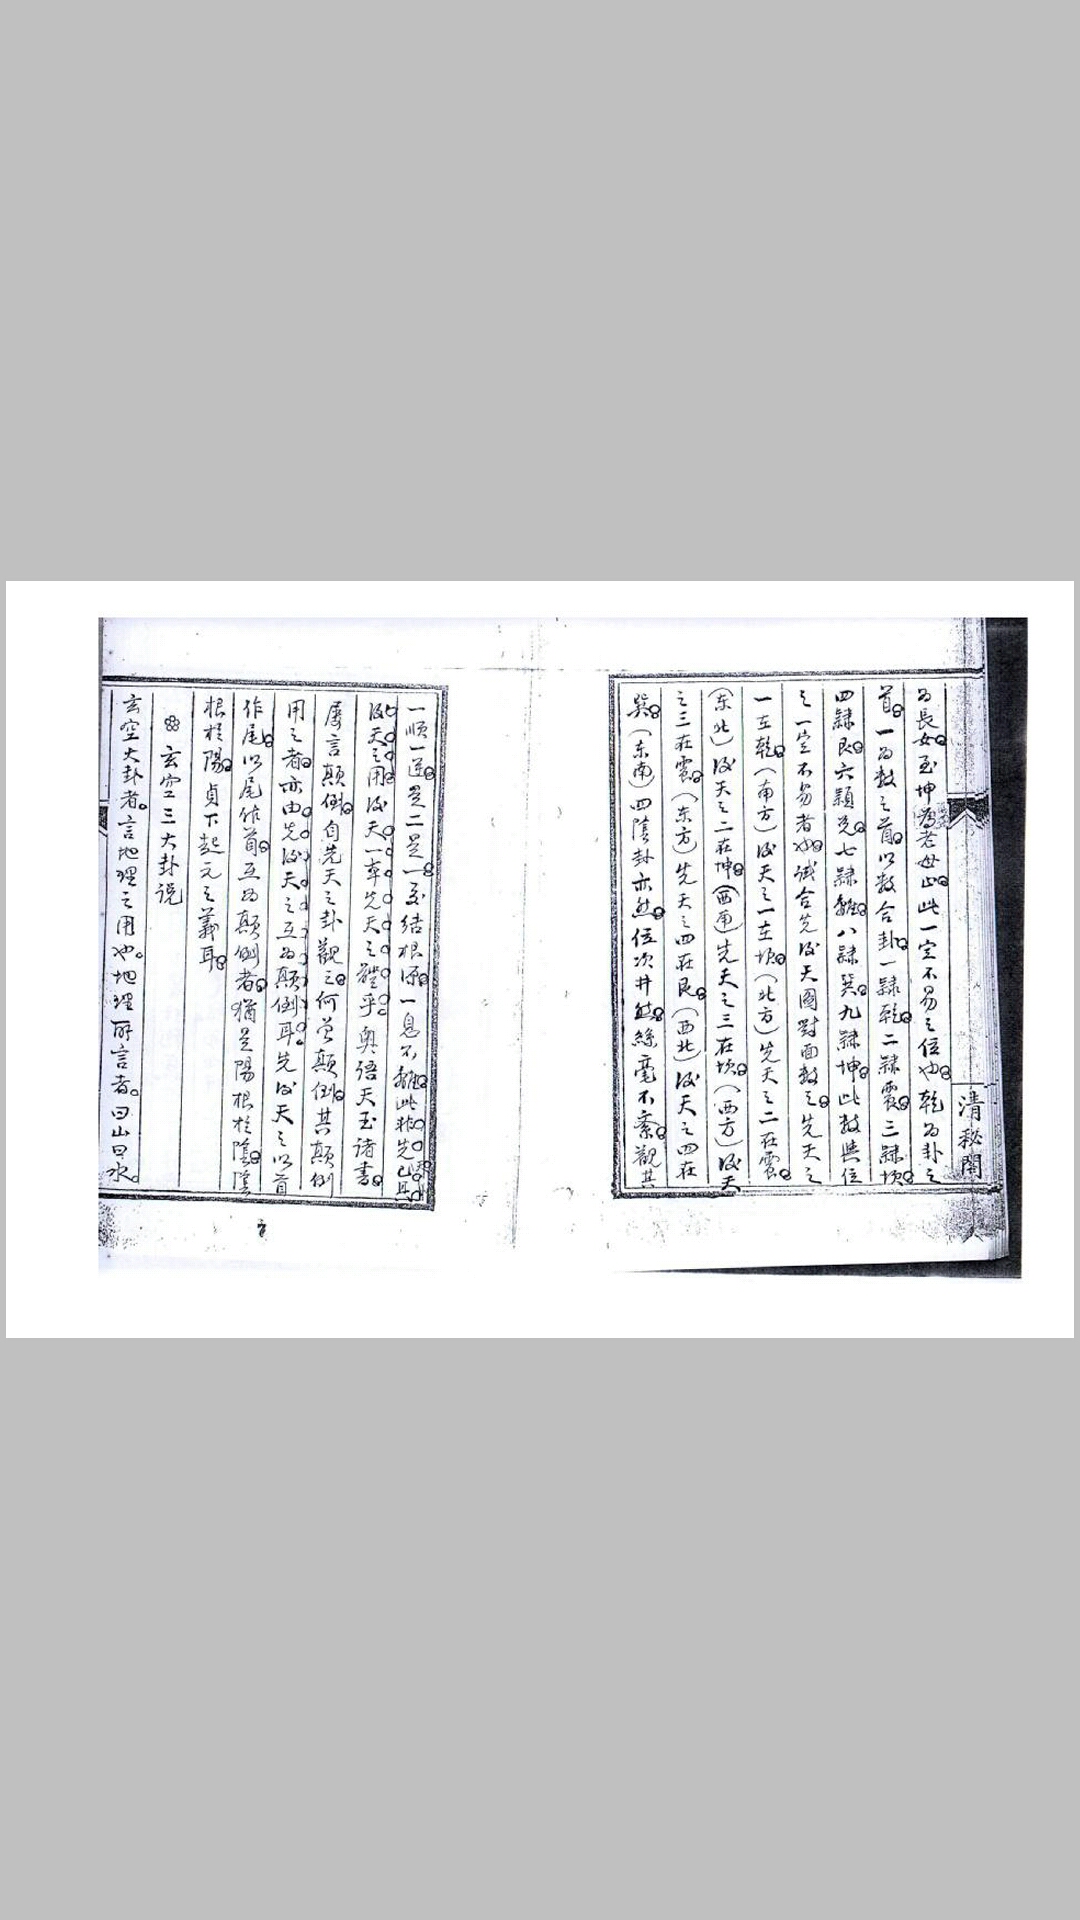 為長女至坤為老母止此一定不易之位也乾為卦之
首一為數之首以數合卦一隸乾二隸震三隸坎
四隸艮六隸兌七隸離八隸巽九隸坤此數與位
之一定不易者也試合先後天圖對面數之先天之
一在乾（南方）後天之一在坎（北方）先天之二在震
（东北）後天之二在坤（西南）先天之三在坎（西方）後天
之三在震（东方）先天之四在艮（西北）後天之四在
巽（东南）四陰卦亦然位次井然絲毫不紊觀其
清秘閣
一順一逆是二是一交結根源一息不離此非先
後天之用後天一率先天之體乎奧语天玉诸書
屡言顛倒自先天之卦觀之何曾顛倒其顛倒
用之者亦由先後天之互為顛倒耳先後天之以首
作尾以尾作首互為顛倒者猶是陽根於陰陰
根於陽貞下起元之義耳
玄空三大卦说
玄空大卦者。言地理之用也。地理所言者。曰山曰水。